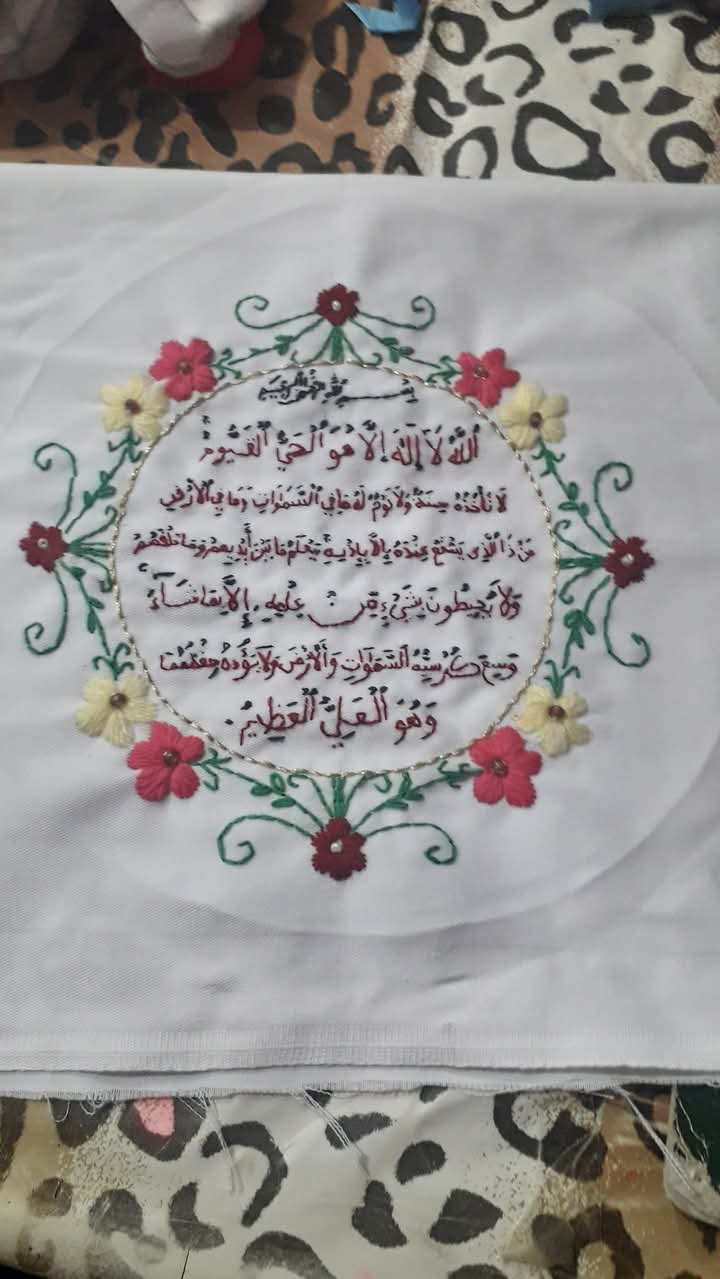 بسم الله الرحمن الرحيم
اللَّهُ لَا إِلَٰهَ إِلَّا هُوَ الْحَيُّ الْقَيُّومُ
لَا تَأْخُذُهُ سِنَةٌ وَلَا نَوْمٌ لَهُ مَا فِي السَّمَوَاتِ وَمَا فِي الْأَرْضِ
مَنْ ذَا الَّذِي يَشْفَعُ عِنْدَهُ إِلَّا بِإِذْنِهِ يَعْلَمُ مَا بَيْنَ أَيْدِيهِمْ وَمَا خَلْفَهُمْ
وَلَا يُحِيطُونَ بِشَيْءٍ مِنْ عِلْمِهِ إِلَّا بِمَا شَاءَ
وَسِعَ كُرْسِيُّهُ السَّمَوَاتِ وَالْأَرْضَ وَلَا يَؤُدُهُ حِفْظُهُمَا
وَهُوَ الْعَلِيُّ الْعَظِيمُ.